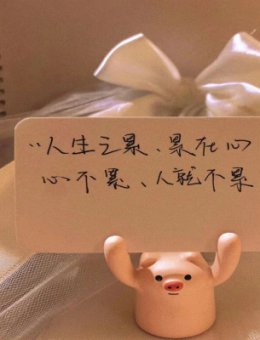 “人生之累、累在心
心不累、人就不累